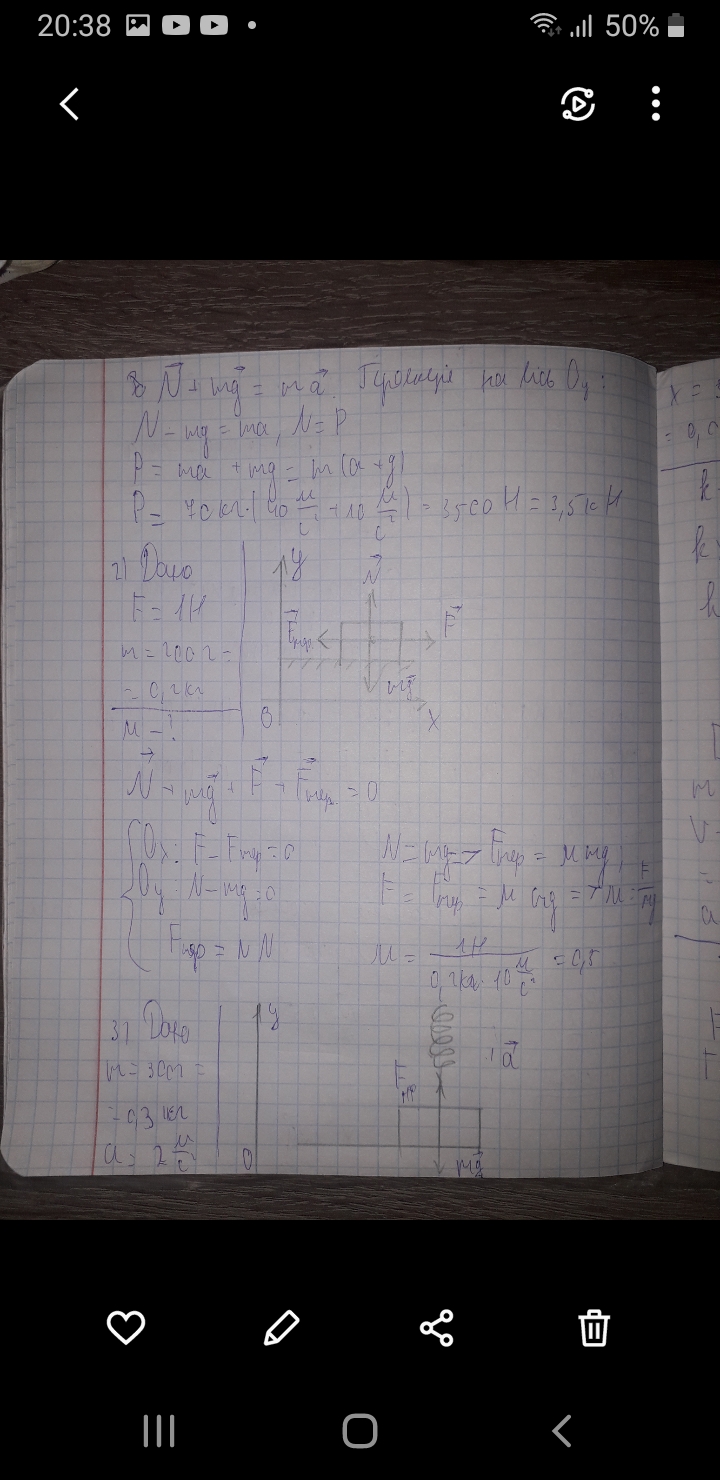 20:38
50%
N⃗ + mg⃗ = ma⃗. Проекція на вісь Oy:
N - mg = ma, N = P
P = ma + mg = m(a+g)
P = 70кг·(40 м/с² + 10 м/с²) = 3500 Н = 3,5 кН
2) Дано
F = 1Н
m = 200 г =
= 0,2кг
μ - ?
y
N⃗
F⃗тер
F⃗
mg⃗
0
x
N⃗ + mg⃗ + F⃗ + F⃗тер = 0
Ox: F - Fтер = 0
Oy: N - mg = 0
Fтер = μN
N = mg => Fтер = μmg;
F = Fтер = μmg => μ = F/mg
μ = 1Н / 0,2кг·10 м/с² = 0,5
3) Дано
m = 300г =
= 0,3 кг
a = 2 м/с²
y
0
Fпр
a⃗
mg⃗